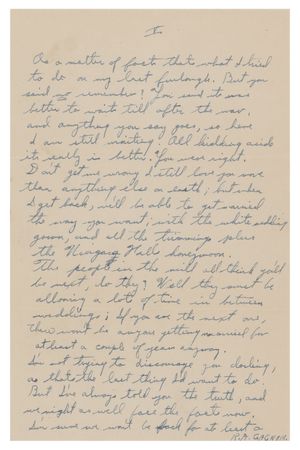 I
As a matter of fact that's what I tried
to do on my last furlough. But you
said no remember? You said it was
better to wait till after the war,
and anything you say goes, so here
I am still waiting! All kidding aside
it really is better. You were right.
Don't get me wrong I still love you more
than anything else on earth; but when
I get back, will be able to get married
the way you want; with the white wedding
gown, and all the trimmings plus
the Niagara Falls honeymoon.
The people in the mill all think you'll
be next, do they? Well they must be
allowing a lots of time in between
weddings; If you are the next one,
there won't be anyone getting married for
at least a couple of years anyway.
I'm not trying to discourage you darling,
as that's the last thing I'd want to do.
But I've always told you the truth; and
we might as well face the facts now.
I'm sure we won't be back for at least a
R.A. GAGNON.